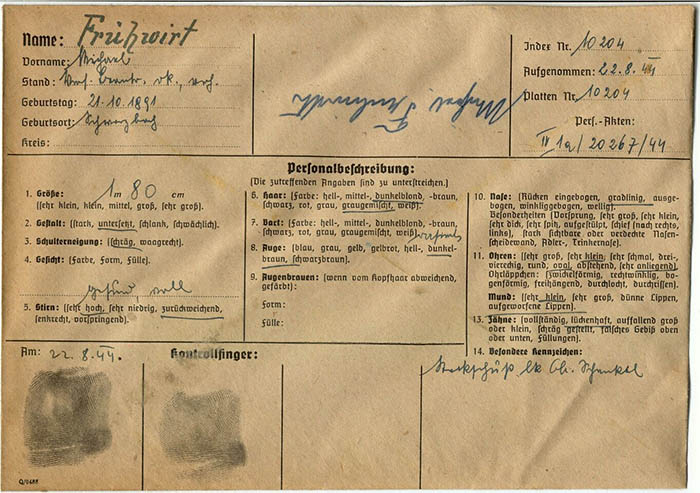 Name: Frühwirt
Vorname: Michael
Stand: Beamter, rk., verh.
Geburtstag: 21.10.1891
Geburtsort: Schwarzbach
Kreis:
Michael Frühwirth
Index Nr. 10204
Aufgenommen: 22.8.44
Platten Nr. 10204
Pers.-Akten:
IV 1a/20267/44
Personalbeschreibung:
(Die zutreffenden Angaben sind zu unterstreichen.)
1. Größe: 1m 80 cm
(sehr klein, klein, mittel, groß, sehr groß).
2. Gestalt: (stark, untersetzt, schlank, schwächlich).
3. Schulterneigung: (schräg, waagrecht).
4. Gesicht: (Farbe, Form, Fülle).
gesund, voll
5. Stirn: (sehr hoch, sehr niedrig, zurückweichend,
senkrecht, vorspringend).
6. Haar: (Farbe: hell-, mittel-, dunkelblond, -braun,
schwarz, rot, grau, graugemischt, weiß).
7. Bart: (Farbe: hell-, mittel-, dunkelblond, -braun,
schwarz, rot, grau, graugemischt, weiß).
8. Auge: (blau, grau, gelb, gelbrot, hell-, dunkel-
braun, schwarzbraun).
9. Augenbrauen: (wenn vom Kopfhaar abweichend,
gefärbt):
Form:
Fülle:
10. Nase: (Rücken eingebogen, gradlinig, ausge-
bogen, winkliggebogen, wellig).
Besonderheiten (Vorsprung, sehr groß, sehr klein,
sehr dick, sehr spitz, aufgestülpt, schief (nach rechts,
links), stark sichtbare oder verdeckte Nasen-
scheidewand, Adler-, Trinkernase).
11. Ohren: (sehr groß, sehr klein, sehr schmal, drei-,
viereckig, rund, oval, abstehend, sehr anliegend).
Ohrläppchen: (zwickelförmig, rechtwinklig, bo-
genförmig, freihängend, durchlocht, durchrissen).
12. Mund: (sehr klein, sehr groß, dünne Lippen,
aufgeworfene Lippen).
13. Zähne: (vollständig, lückenhaft, auffallend groß
oder klein, schräg gestellt, falsches Gebiß oben
oder unten, Füllungen).
14. Besondere Kennzeichen:
Steckschuß lk. Ob. Schenkel
Am: 22.8.44.
Kontrollfinger:
Q/0488